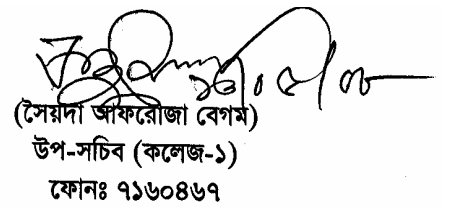 (সৈয়দা আফরৌজা বেগম)
উপ-সচিব (কলেজ-১)
ফোনঃ ৭১৬০৪৬৭